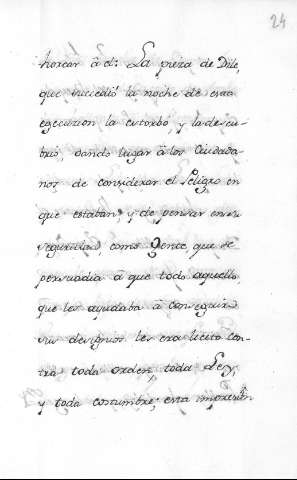 24
horcar â el: La preza de Dile,
que sucedió la noche de esta
egecuzion la estorbó, y la descu-
brió, dando lugar â los Ciudada-
nos de considerar el Peligro en
que estaban, y de pensar en su
seguridad, como Gente, que se
persuadia â que todo aquello,
que les ayudaba â conseguir
sus designios les era liceto con-
tra toda orden, toda Ley,
y toda costumbre; esta impresión